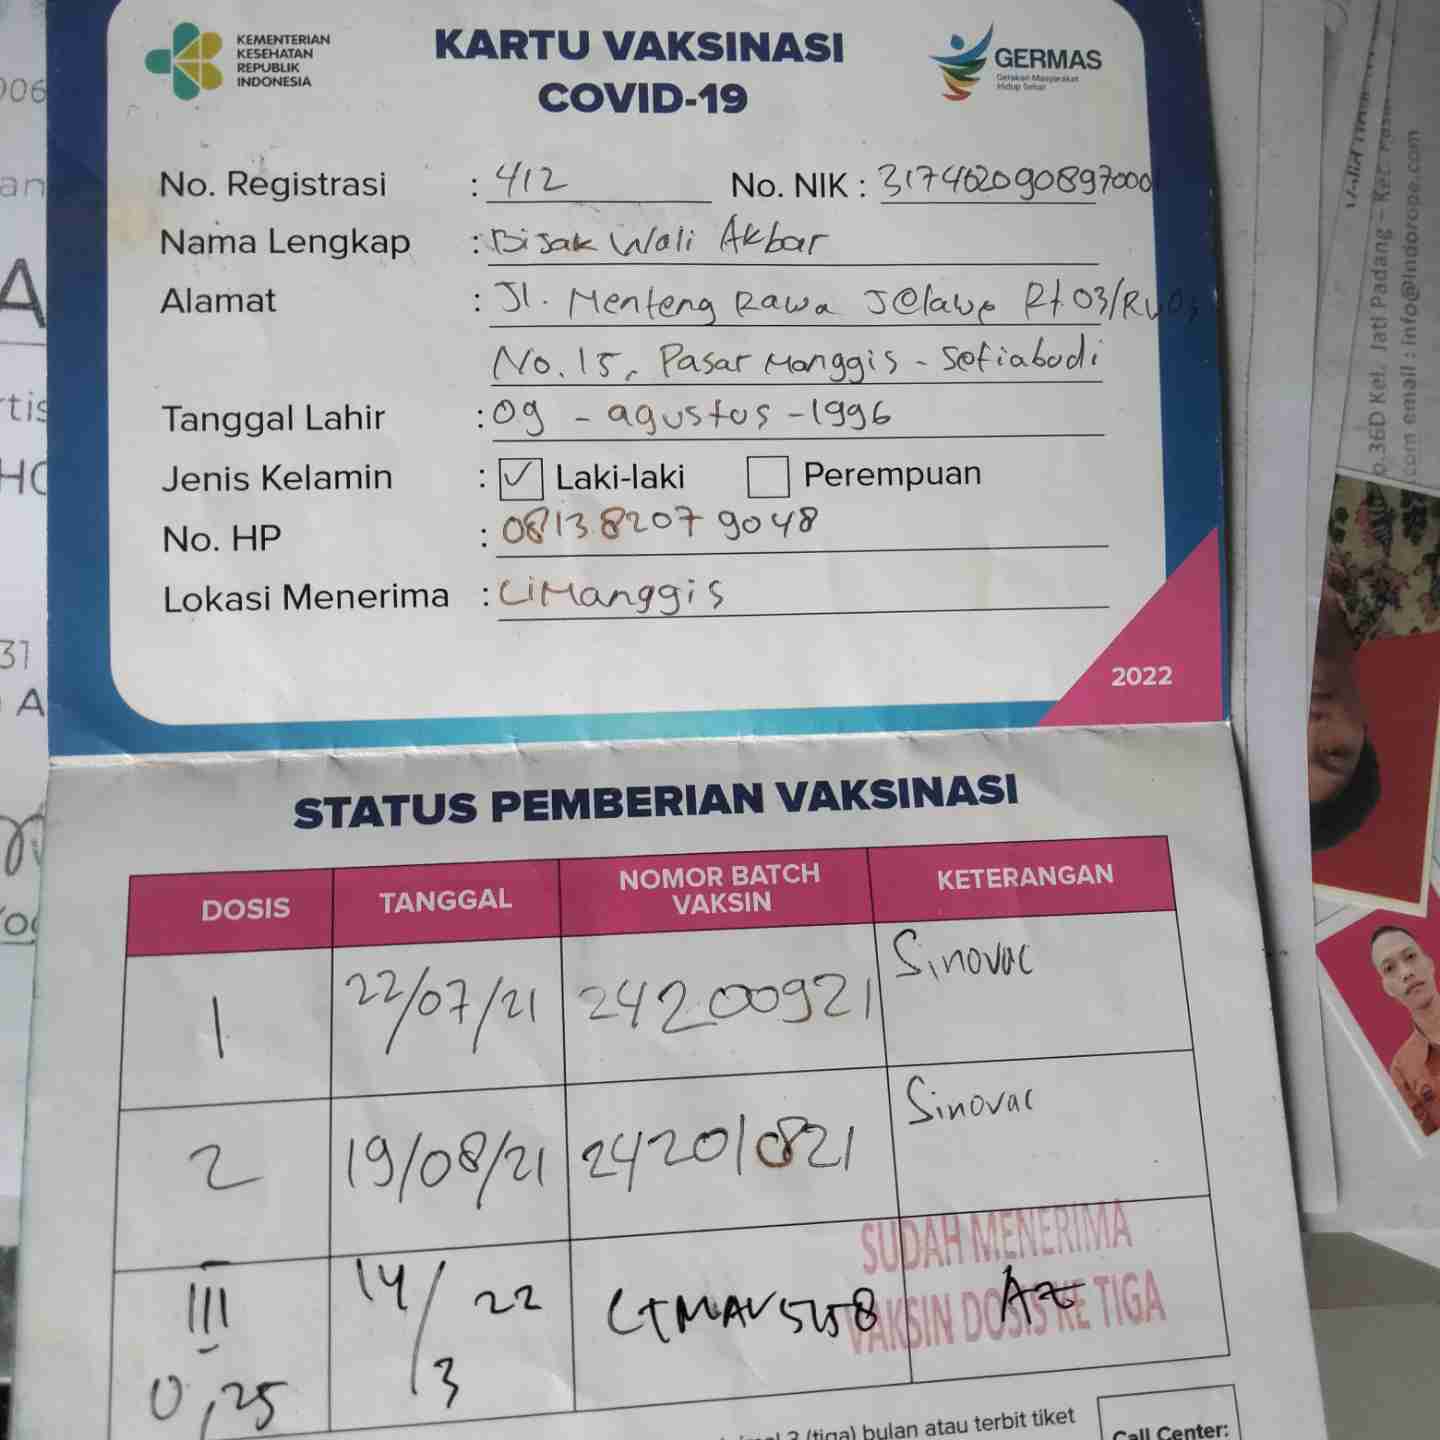 KEMENTERIAN
KESEHATAN
REPUBLIK
INDONESIA
KARTU VAKSINASI
COVID-19
GERMAS
Gerakan Masyarakat
Hidup Sehat
No. Registrasi : 412 No. NIK : 317402090897000
Nama Lengkap : Bijak Wali Akbar
Alamat : Jl. Menteng Rawa Jelawe Rt 03/Rw
No. 15, Pasar Manggis - Setiabudi
Tanggal Lahir : 09 - agustus - 1996
Jenis Kelamin : ✓ Laki-laki Perempuan
No. HP : 081382079048
Lokasi Menerima : CiManggis
2022
STATUS PEMBERIAN VAKSINASI
DOSIS TANGGAL NOMOR BATCH VAKSIN KETERANGAN
1 22/07/21 24200921 Sinovac
2 19/08/21 242010821 Sinovac
III 14/3 22 AZ
0,25
SUDAH MENERIMA
VAKSIN DOSIS KE TIGA
3 (tiga) bulan atau terbit tiket
Call Center:
o.36D Kel. Jati Padang - Kec.
com email : info@indorope.com